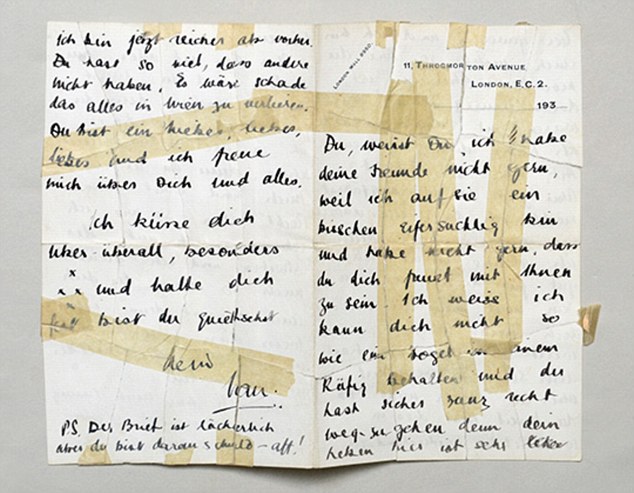 ich bin jetzt reicher als vorher.
Du hast so viel, dass andere
nicht haben. Es wäre schade
das alles in Wien zu verlieren.
Du bist ein liebes, liebes,
liebes und ich freue
mich über Dich und alles.
ich küsse dich
über überall, besonders
x x x und halte dich
fest Bist du
dein
Ian.
PS. Der Brief ist lächerlich
aber du bist daran schuld –
LONDON WALL
11, THROGMORTON AVENUE,
LONDON, E.C.2.
193
Du, weisst Du, ich habe
deine Freunde nicht gern,
weil ich auf Sie ein
bischen eifersuchtig bin
und habe nicht gern, dass
du dich freust mit Ihnen
zu sein. Ich weiss ich
kann dich nicht so
wie ein Vogel in einem
Käfig behalten und du
hast sicher ganz recht
weg-zu gehen denn dein
leben hier ist sehr